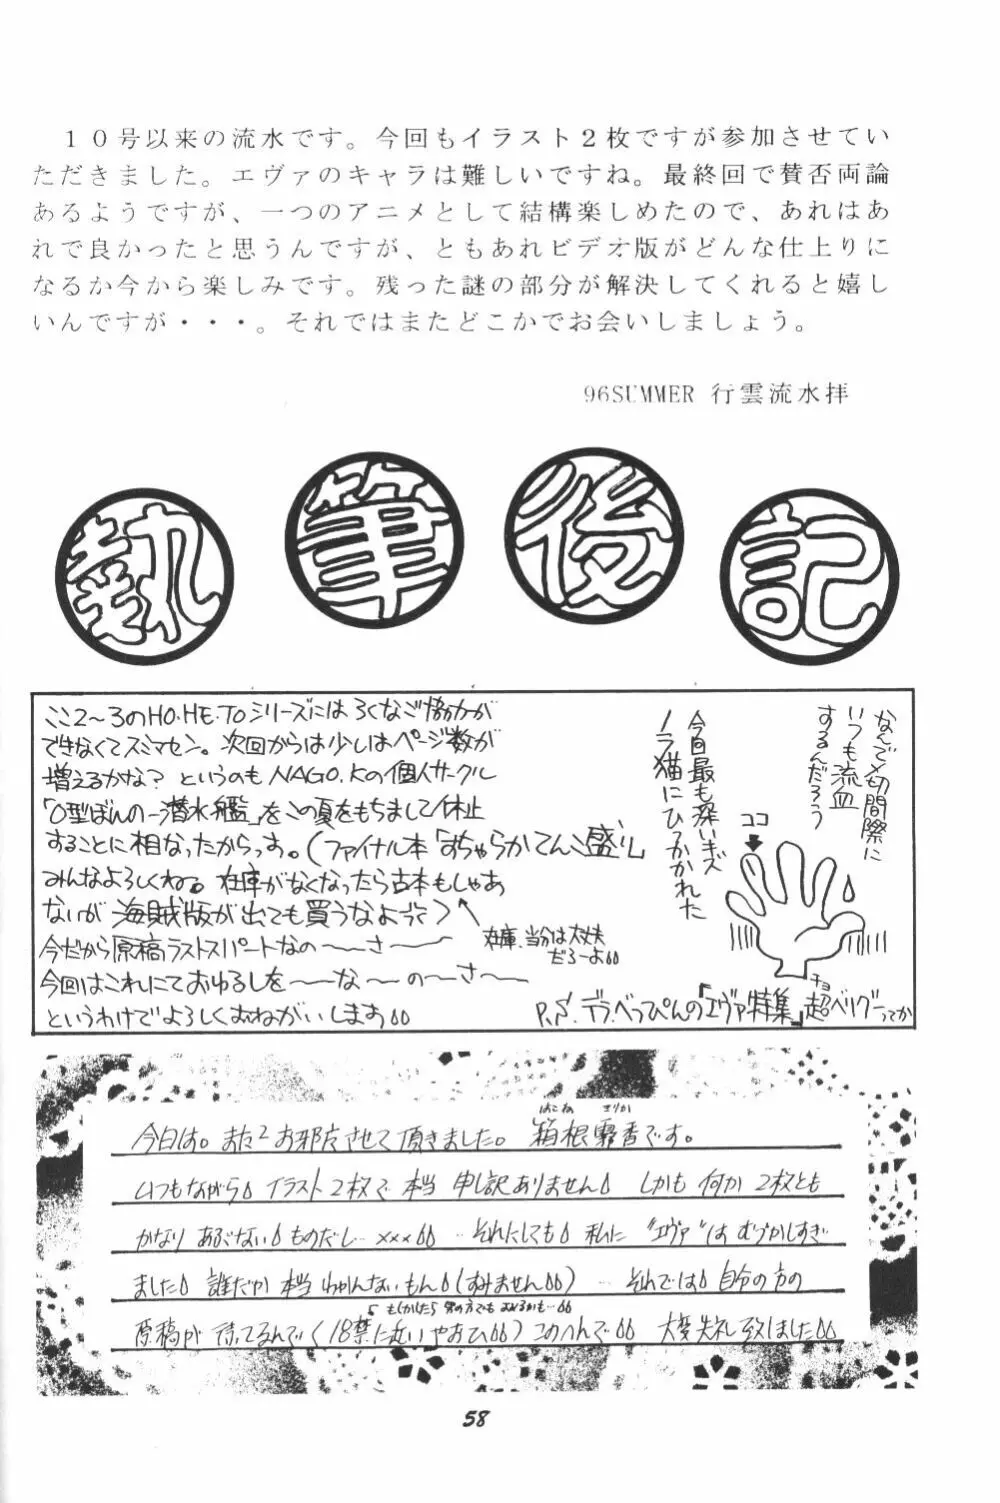 10号以来の流水です。今回もイラスト2枚ですが参加させてい
ただきました。エヴァのキャラは難しいですね。最終回で賛否両論
あるようですが、一つのアニメとして結構楽しめたので、あれはあ
れで良かったと思うんですが、ともあれビデオ版がどんな仕上りに
なるか今から楽しみです。残った謎の部分が解決してくれると嬉し
いんですが・・・。それではまたどこかでお会いしましょう。
96SUMMER 行雲流水拝
執筆後記
ここ2〜3のHO・HE・TOシリーズにはろくなご協力が
できなくてスミマセン。次回からは少しはページ数が
増えるかな? というのもNAGO.Kの個人サークル
「O型ぼんのー潜水艦」をこの夏をもちまして休止
することに相なったからっす。(ファイナル本「おちゃらかてんこ盛り」
みんなよろしくねる 在庫がなくなったら古本もしゃあ
ないが海賊版が出ても買うなよって)
在庫、当分は大丈夫
だろーよ
今だから原稿ラストスパートなの〜〜さ〜〜
今回はこれにておゆるしを〜〜な〜〜の〜さ〜〜
というわけでよろしくおねがいします
なんで〆切間際に
いつも流血
するんだろう
ココ
今回最も深いキズ
ノラ猫にひっかかれた
チョ
P.S. デラべっぴんの「エヴァ特集」超ベリグーってか
はこね
今日は。また2お邪魔させて頂きました。箱根霧香です。
いつもながら イラスト2枚で 本当 申し訳ありません しかも 何か 2枚とも
かなり あぶない ものだし… ××× …それにしても 私に "エヴァ"は むづかしすぎ
ました 誰だか 本当 わかんないもん (すみません) …それでは 自分の方の
もしかしたら 男の方でも おるかも…
原稿が 待ってるんで (18禁に近いやおひ) このへんで 大変失礼致しました
58